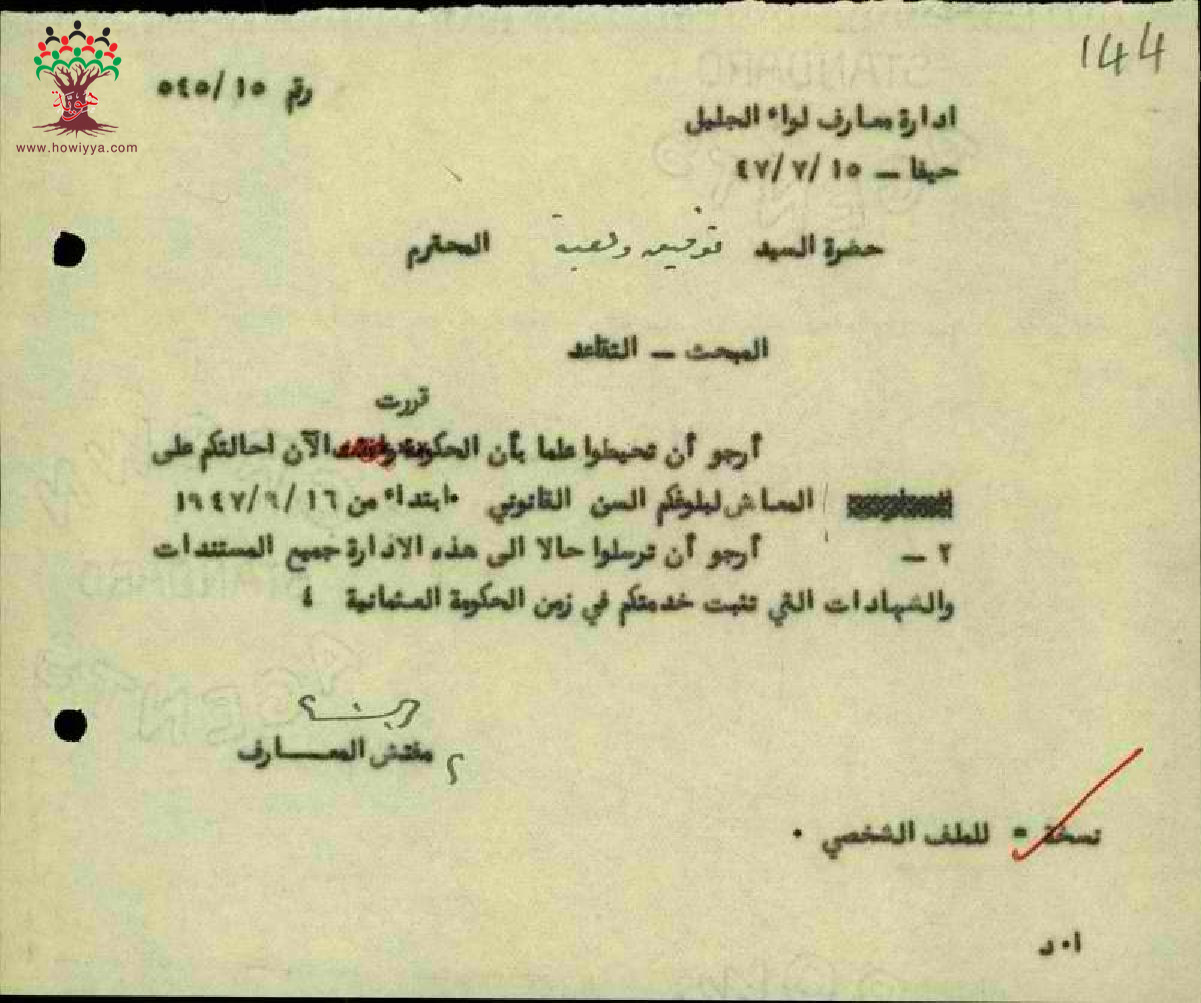 144
هوية
www.howiyya.com
رقم ١٥/٥٤٥
ادارة معارف لواء الجليل
حيفا – ١٥/٧/٤٧
حضرة السيد توفيق المحترم
المبحث – التقاعد
قررت
أرجو أن تحيطوا علما بأن الحكومة الآن احالتكم على
المعاش لبلوغكم السن القانوني ابتداء من ١٦/٩/١٩٤٧
٢ – أرجو أن ترسلوا حالا الى هذه الادارة جميع المستندات
والشهادات التي تثبت خدمتكم في زمن الحكومة العثمانية ؛
مفتش المعــارف
نسخة – للملف الشخصي ٠
ا٠د